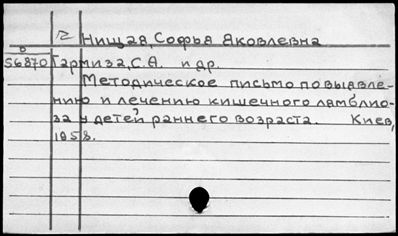 Нищая, Софья Яковлевна
56870 Гармиза, С.А. и др.
Методическое письмо по выявле-
нию и лечению кишечного лямблио-
за у детей раннего возраста. Киев,
1958.